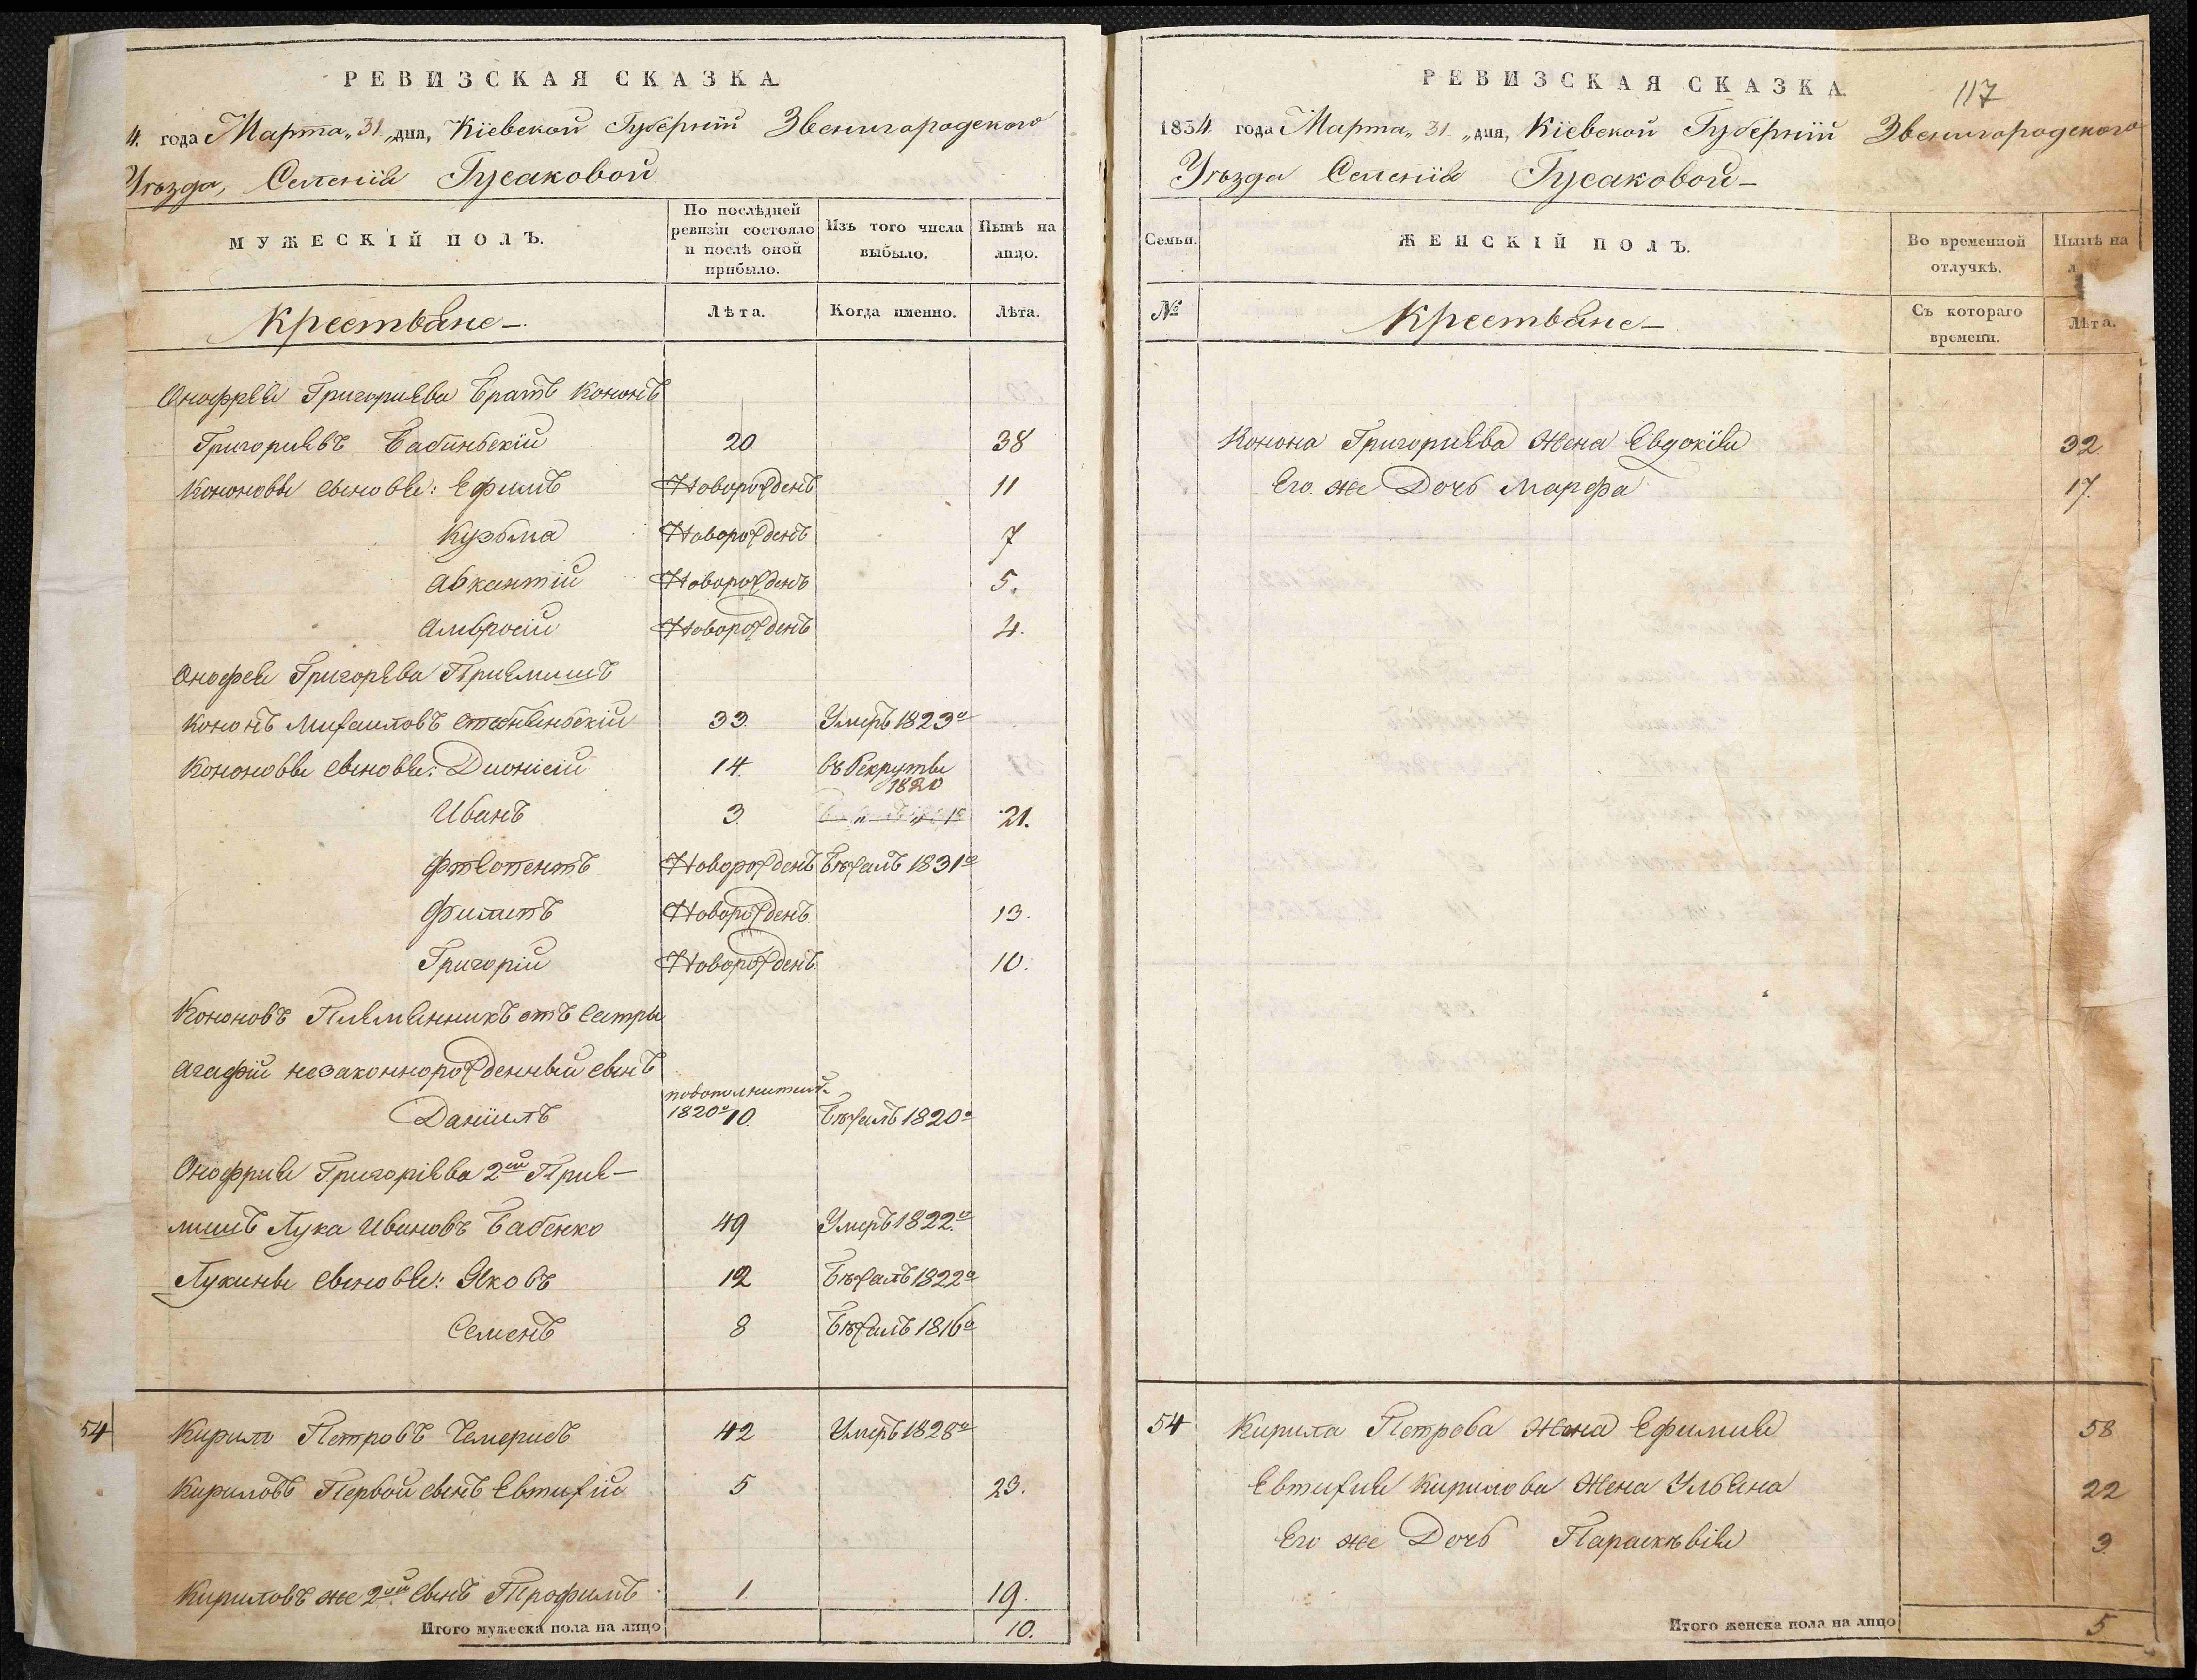 РЕВИЗСКАЯ СКАЗКА
4. года Марта „31„ дня, Кіевской Губерніи Звенигородского
Уѣзда, Селенія Гусаковой
МУЖЕСКІЙ ПОЛЪ.
По послѣдней ревизіи состояло и послѣ оной прибыло.
Изъ того числа выбыло.
Нынѣ на лицо.
Крестьяне
Лѣта.
Когда именно.
Лѣта.
Онофрея Григориева Братъ Кононъ
Григориевъ Бабинскій 20 38
Кононовы сыновья: Ефимъ Новорожденъ 11
Кузьма Новорожденъ 7
Новорожденъ 5.
Амвросій Новорожденъ 4.
Онофрея Григорьева Приемишъ
Кононъ Михаиловъ 33 Умеръ 1823го
Кононовы сыновья: Дионісій 14 въ Рекруты 1820
Иванъ 3 21.
Новорожденъ Бѣжалъ 1831го
Филипъ Новорожденъ 13.
Григорій Новорожденъ 10.
Кононовъ Племянникъ отъ Сестры
Агафіи незаконнорожденный сынъ
Даніилъ 1820го 10. Бѣжалъ 1820го
Онофрия Григоріева 2ой Прие-
мишъ Лука Ивановъ Бабенко 49 Умеръ 1822го
Лукины сыновья: Яковъ 12 Бѣжалъ 1822го
Семенъ 8 Бѣжалъ 1816го
54 Кирило Петровъ Чемерисъ 42 Умеръ 1828го
Кириловъ Первой сынъ Евтихій 5 23.
Кириловъ же 2ой сынъ Трофимъ 1. 19.
Итого мужеска пола на лицо 10.
РЕВИЗСКАЯ СКАЗКА
117
1834 года Марта „31„ дня, Кіевской Губерніи Звенигородского
Уѣзда Селенія Гусаковой
Семьи.
ЖЕНСКІЙ ПОЛЪ.
Во временной отлучкѣ.
Нынѣ на
№
Крестьяне
Съ котораго времени.
Лѣта.
Конона Григориева Жена Евдокія 32
Его же Дочь Марфа 17.
54 Кирила Петрова Жена Ефимия 58
Евтихия Кирилова Жена Ульяна 22
Его же Дочь Параскѣвія 3
Итого женска пола на лицо 5